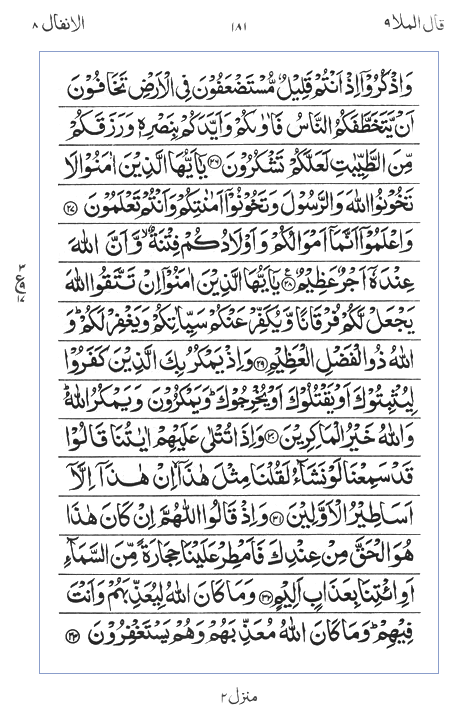 قال الملا ٩ ١٨١ الانفال ٨
وَاذْكُرُوْۤا اِذْ اَنْتُمْ قَلِيْلٌ مُّسْتَضْعَفُوْنَ فِي الْاَرْضِ تَخَافُوْنَ
اَنْ يَّتَخَطَّفَكُمُ النَّاسُ فَاٰوٰىكُمْ وَاَيَّدَكُمْ بِنَصْرِهٖ وَرَزَقَكُمْ
مِّنَ الطَّيِّبٰتِ لَعَلَّكُمْ تَشْكُرُوْنَ ﴿٢٦﴾ يٰۤاَيُّهَا الَّذِيْنَ اٰمَنُوْا لَا
تَخُوْنُوا اللّٰهَ وَالرَّسُوْلَ وَتَخُوْنُوْۤا اَمٰنٰتِكُمْ وَاَنْتُمْ تَعْلَمُوْنَ ﴿٢٧﴾
وَاعْلَمُوْۤا اَنَّمَاۤ اَمْوَالُكُمْ وَاَوْلَادُكُمْ فِتْنَةٌ ۙ وَّاَنَّ اللّٰهَ
عِنْدَهٗۤ اَجْرٌ عَظِيْمٌ ﴿٢٨﴾ ع يٰۤاَيُّهَا الَّذِيْنَ اٰمَنُوْۤا اِنْ تَتَّقُوا اللّٰهَ
٣
ع
٩
١٧
يَجْعَلْ لَّكُمْ فُرْقَانًا وَّيُكَفِّرْ عَنْكُمْ سَيِّاٰتِكُمْ وَيَغْفِرْ لَكُمْ ؕ وَ
اللّٰهُ ذُو الْفَضْلِ الْعَظِيْمِ ﴿٢٩﴾ وَاِذْ يَمْكُرُ بِكَ الَّذِيْنَ كَفَرُوْا
لِيُثْبِتُوْكَ اَوْ يَقْتُلُوْكَ اَوْ يُخْرِجُوْكَ ؕ وَيَمْكُرُوْنَ وَيَمْكُرُ اللّٰهُ ؕ
وَاللّٰهُ خَيْرُ الْمَاكِرِيْنَ ﴿٣٠﴾ وَاِذَا تُتْلٰى عَلَيْهِمْ اٰيٰتُنَا قَالُوْا
قَدْ سَمِعْنَا لَوْ نَشَآءُ لَقُلْنَا مِثْلَ هٰذَاۤ ۙ اِنْ هٰذَاۤ اِلَّاۤ
اَسَاطِيْرُ الْاَوَّلِيْنَ ﴿٣١﴾ وَاِذْ قَالُوا اللّٰهُمَّ اِنْ كَانَ هٰذَا
هُوَ الْحَقَّ مِنْ عِنْدِكَ فَاَمْطِرْ عَلَيْنَا حِجَارَةً مِّنَ السَّمَآءِ
اَوِ ائْتِنَا بِعَذَابٍ اَلِيْمٍ ﴿٣٢﴾ وَمَا كَانَ اللّٰهُ لِيُعَذِّبَهُمْ وَاَنْتَ
فِيْهِمْ ؕ وَمَا كَانَ اللّٰهُ مُعَذِّبَهُمْ وَهُمْ يَسْتَغْفِرُوْنَ ﴿٣٣﴾
منزل ٢